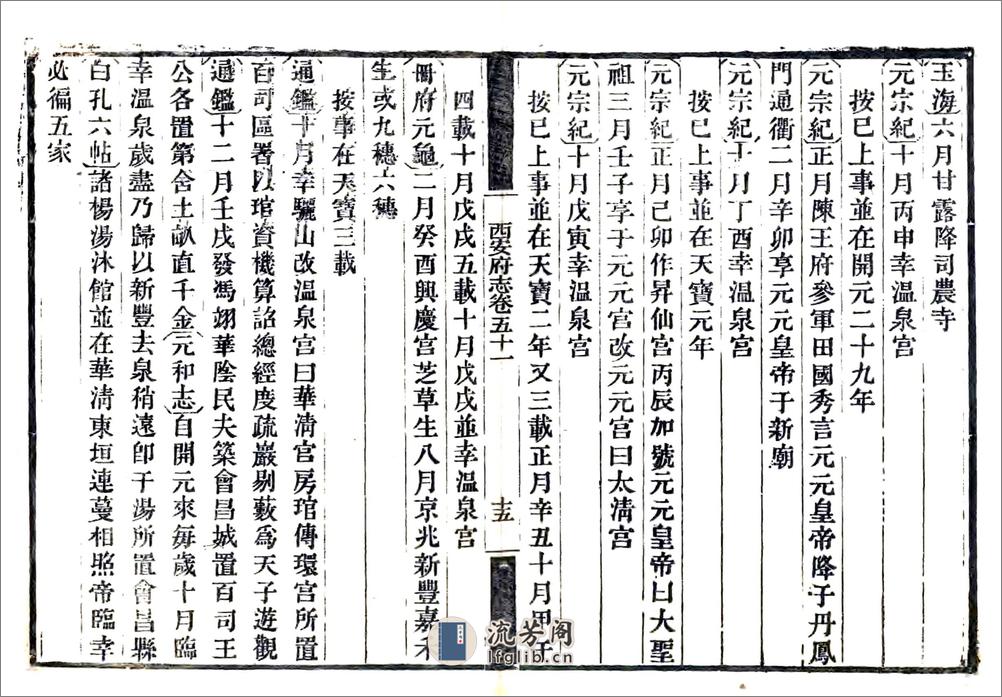 玉海六月甘露降司農寺
元宗紀十月丙申幸溫泉宮
按已上事並在開元二十九年
元宗紀正月陳王府參軍田國秀言元元皇帝降于丹鳳
門通衢二月辛卯享元元皇帝于新廟
元宗紀十月丁酉幸溫泉宮
按已上事並在天寶元年
元宗紀正月己卯作昇仙宮丙辰加號元元皇帝曰大聖
祖三月壬子享于元元宮改元元宮曰太清宮
元宗紀十月戊寅幸溫泉宮
按已上事並在天寶二年又三載正月辛丑十月甲午
四載十月戊戌五載十月戊戌並幸溫泉宮
冊府元龜二月癸酉興慶宮芝草生八月京兆新豐嘉禾
生或九穗六穗
按事在天寶三載
通鑑十月幸驪山改溫泉宮曰華清宮房琯傳環宮所置
百司區署以琯資機算詔總經度疏巖剔藪爲天子遊觀
通鑑十二月壬戌發馮翊華陰民夫築會昌城置百司王
公各置第舍土畝直千金元和志自開元來每歲十月臨
幸溫泉歲盡乃歸以新豐去泉稍遠卽于湯所置會昌縣
白孔六帖諸楊湯沐館並在華清東垣連蔓相照帝臨幸
必徧五家
西安府志卷五十一
十五
流芳阁
lfglib.cn